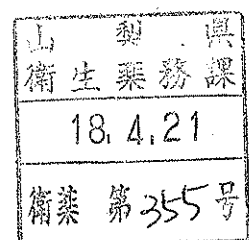 山梨県
衛生薬務課
18.4.21
衛薬 第355号